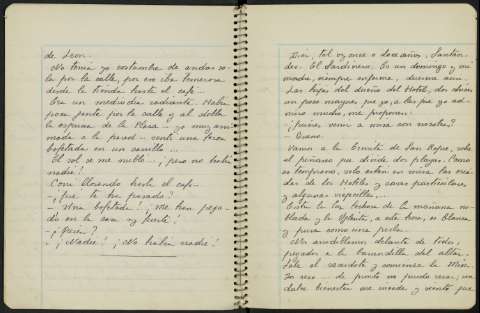 de León.
No tenía yo costumbre de andar so-
la por la calle, por eso iba temerosa
desde la tienda hasta el café...
Era un mediodía radiante. Había
poca gente por la calle y al doblar
la esquina de la Plaza... yo muy arri-
mada a la pared... sentí una feroz
bofetada en un carrillo...
El sol se me nubló... ¡pero no había
nadie!
Corrí llorando hasta el café...
- ¿Qué te ha pasado?
- ¡Una bofetada! ¡Me han pega-
do en la cara muy fuerte!
- ¿Quién?
- ¡Nadie! ¡No había nadie!
diez, tal vez once o doce años. Santan-
der. El Sardinero. Es un domingo y mi
madre, siempre enferma, duerme aún.
Las hijas del dueño del Hotel, dos chicas
un poco mayores que yo, a las que yo ad-
miro mucho, me proponen:
¿quieres venir a misa con nosotras?
- Bueno.
Vamos a la Ermita de San Roque, sobre
el peñasco que divide dos playas. Como
es temprano, sólo están en misa las cria-
das de los Hoteles y casas particulares,
y algunas viejecillas...
Está la luz todavía de la mañana nu-
blada y la Iglesia, a esta hora, es blanca
y pura como una perla.
Nos arrodillamos delante de todos,
pegadas a la barandilla del altar.
Sale el sacerdote y comienza la Misa.
Yo rezo... de pronto no puedo rezar, un
dulce bienestar me invade y siento que